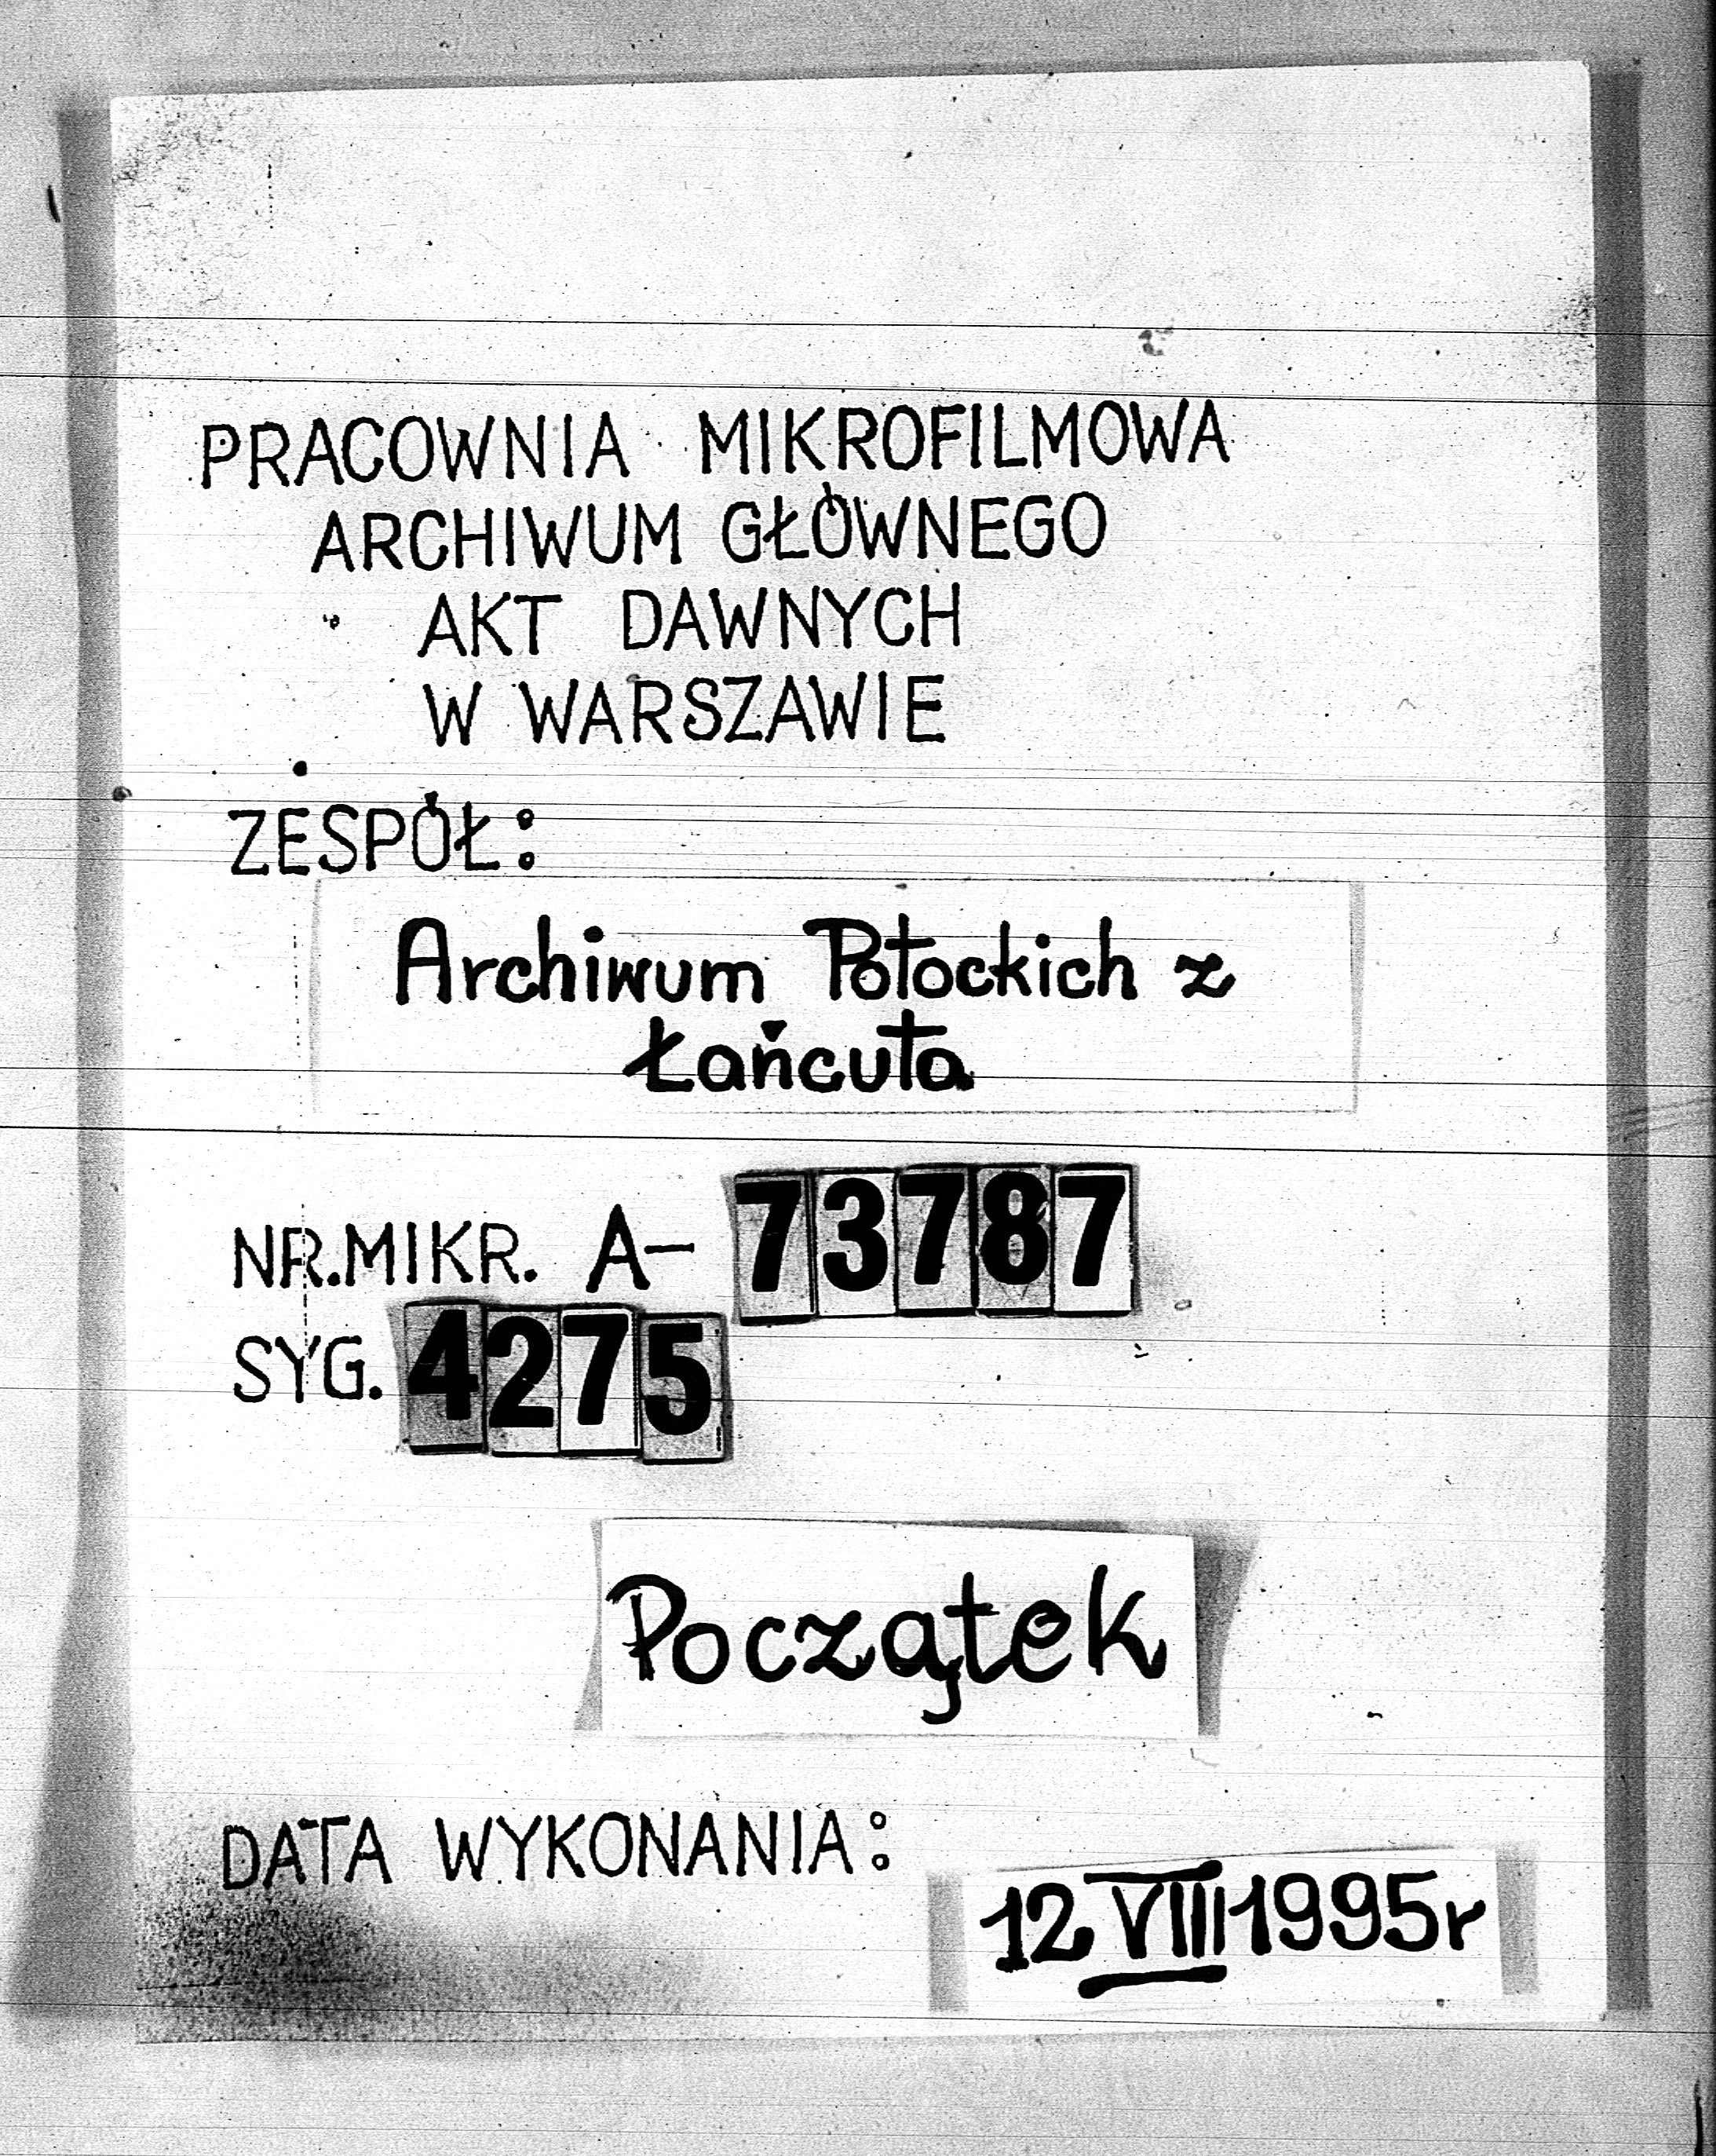 PRACOWNIA MIKROFILMOWA
ARCHIWUM GŁÓWNEGO
AKT DAWNYCH
W WARSZAWIE
ZESPÓŁ:
Archiwum Potockich z
Łańcuta
NR.MIKR. A- 73787
SYG. 4275
Początek
DATA WYKONANIA:
12 VIII 1995r